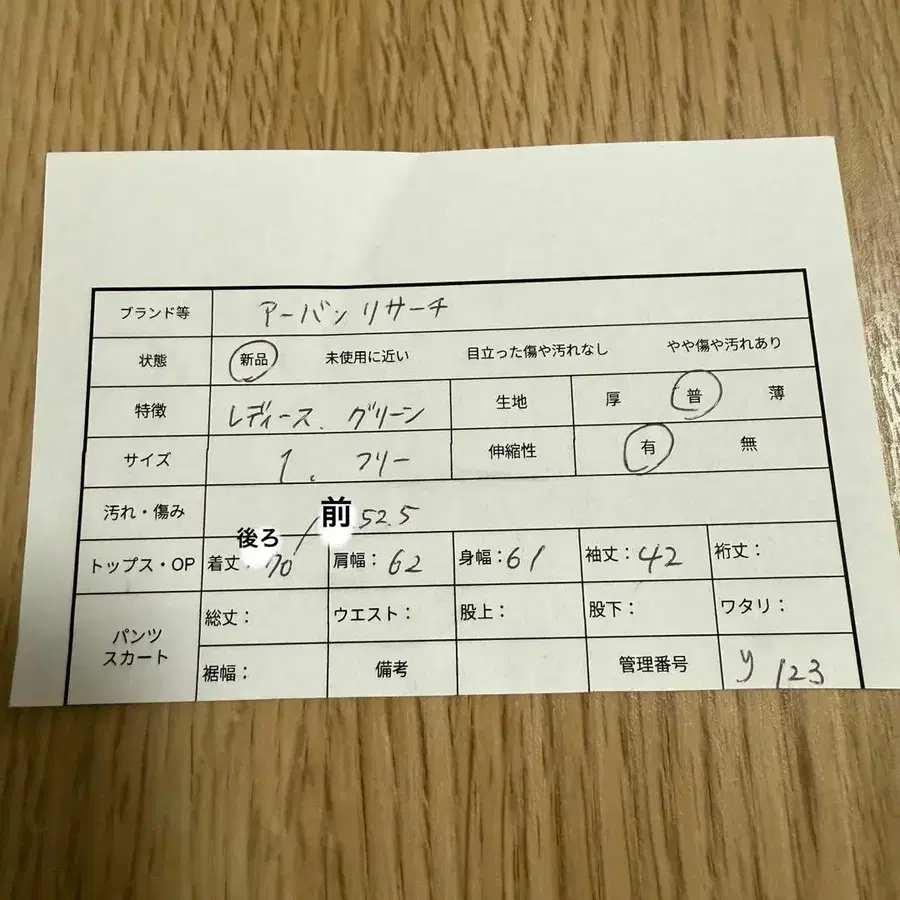 ブランド等 アーバンリサーチ
状態 新品 未使用に近い 目立った傷や汚れなし やや傷や汚れあり
特徴 レディース. グリーン 生地 厚 普 薄
サイズ 1. フリー 伸縮性 有 無
汚れ・傷み
後ろ 前 52.5
トップス・OP 着丈: 70/ 肩幅: 62 身幅: 61 袖丈: 42 裄丈:
パンツ スカート
総丈: ウエスト: 股上: 股下: ワタリ:
裾幅: 備考 管理番号 y 123